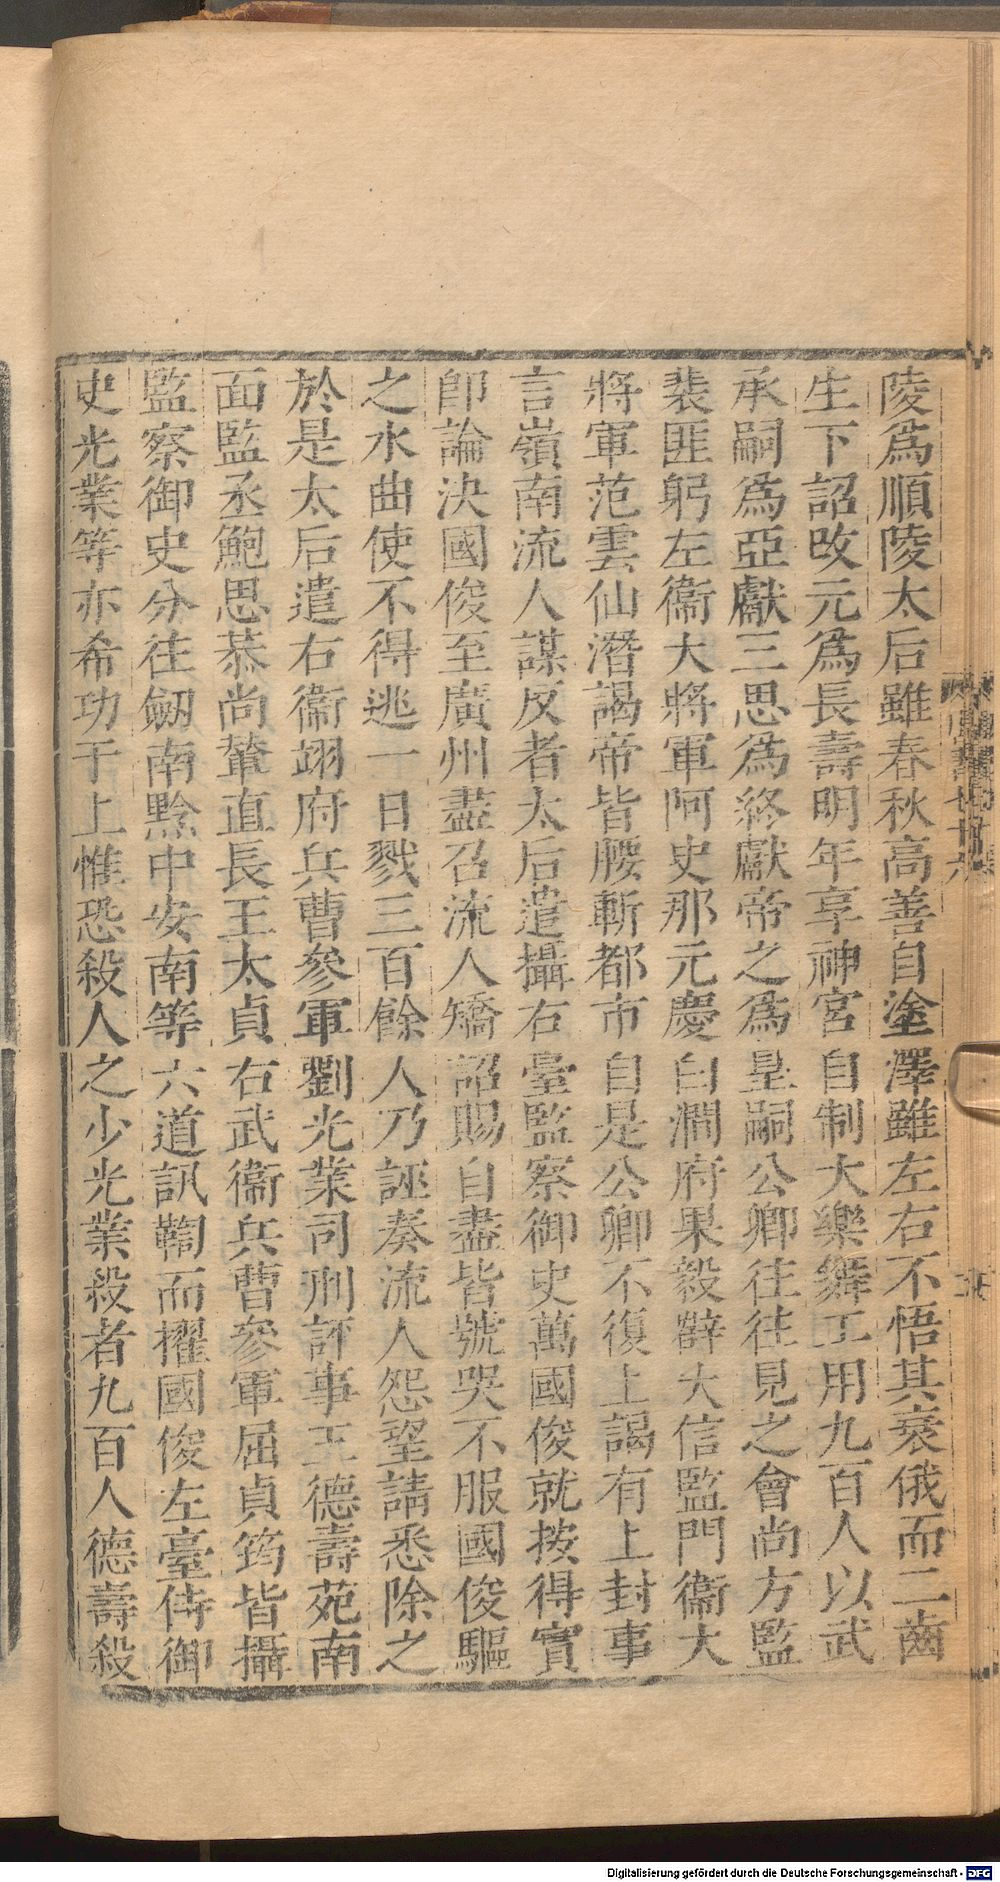 陵爲順陵太后雖春秋高善自塗澤雖左右不悟其衰俄而二齒
生下詔改元爲長壽明年享神宮自制大樂舞工用九百人以武
承嗣爲亞獻三思爲終獻帝之爲皇嗣公卿往往見之會尚方監
裴匪躬左衞大將軍阿史那元慶白澗府果毅薛大信監門衞大
將軍范雲仙潛謁帝皆腰斬都市自是公卿不復上謁有上封事
言嶺南流人謀反者太后遣攝右臺監察御史萬國俊就按得實
卽論決國俊至廣州盡召流人矯詔賜自盡皆號哭不服國俊驅
之水曲使不得逃一日戮三百餘人乃誣奏流人怨望請悉除之
於是太后遣右衞翊府兵曹參軍劉光業司刑評事王德壽苑南
面監丞鮑思恭尚輦直長王太貞右武衞兵曹參軍屈貞筠皆攝
監察御史分往劒南黔中安南等六道訊鞫而擢國俊左臺侍御
史光業等亦希功于上惟恐殺人之少光業殺者九百人德壽殺
Digitalisierung gefördert durch die Deutsche Forschungsgemeinschaft - DFG